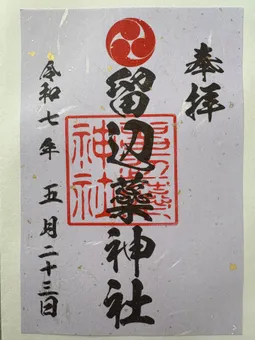 奉拝
留辺蘂神社
令和七年 五月二十三日
神社